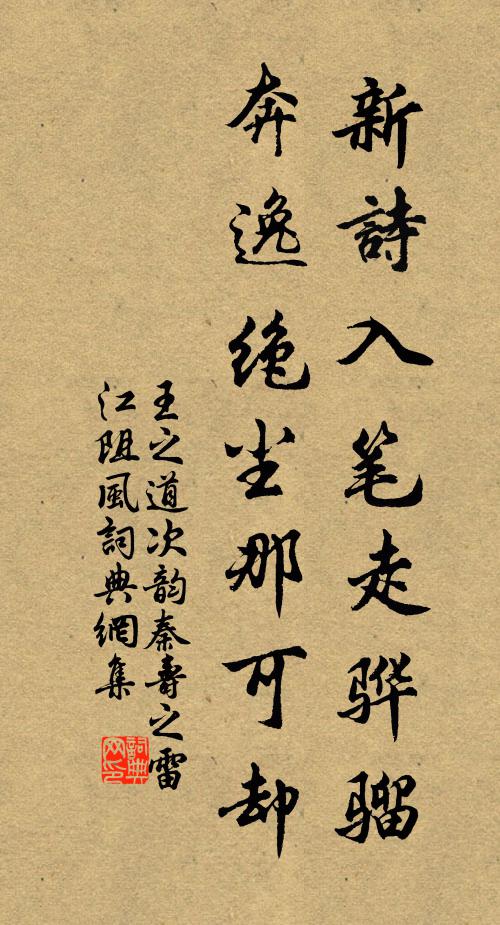 新詩入笔走骅骝
奔逸绝尘那可却
王之道次韵秦寿之雷
江阻風詞典網集
詞典
网印